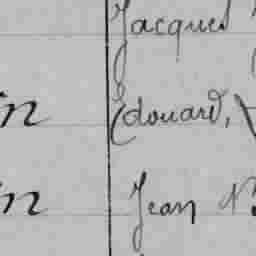 Jacques
in Edouard,
in Jean B